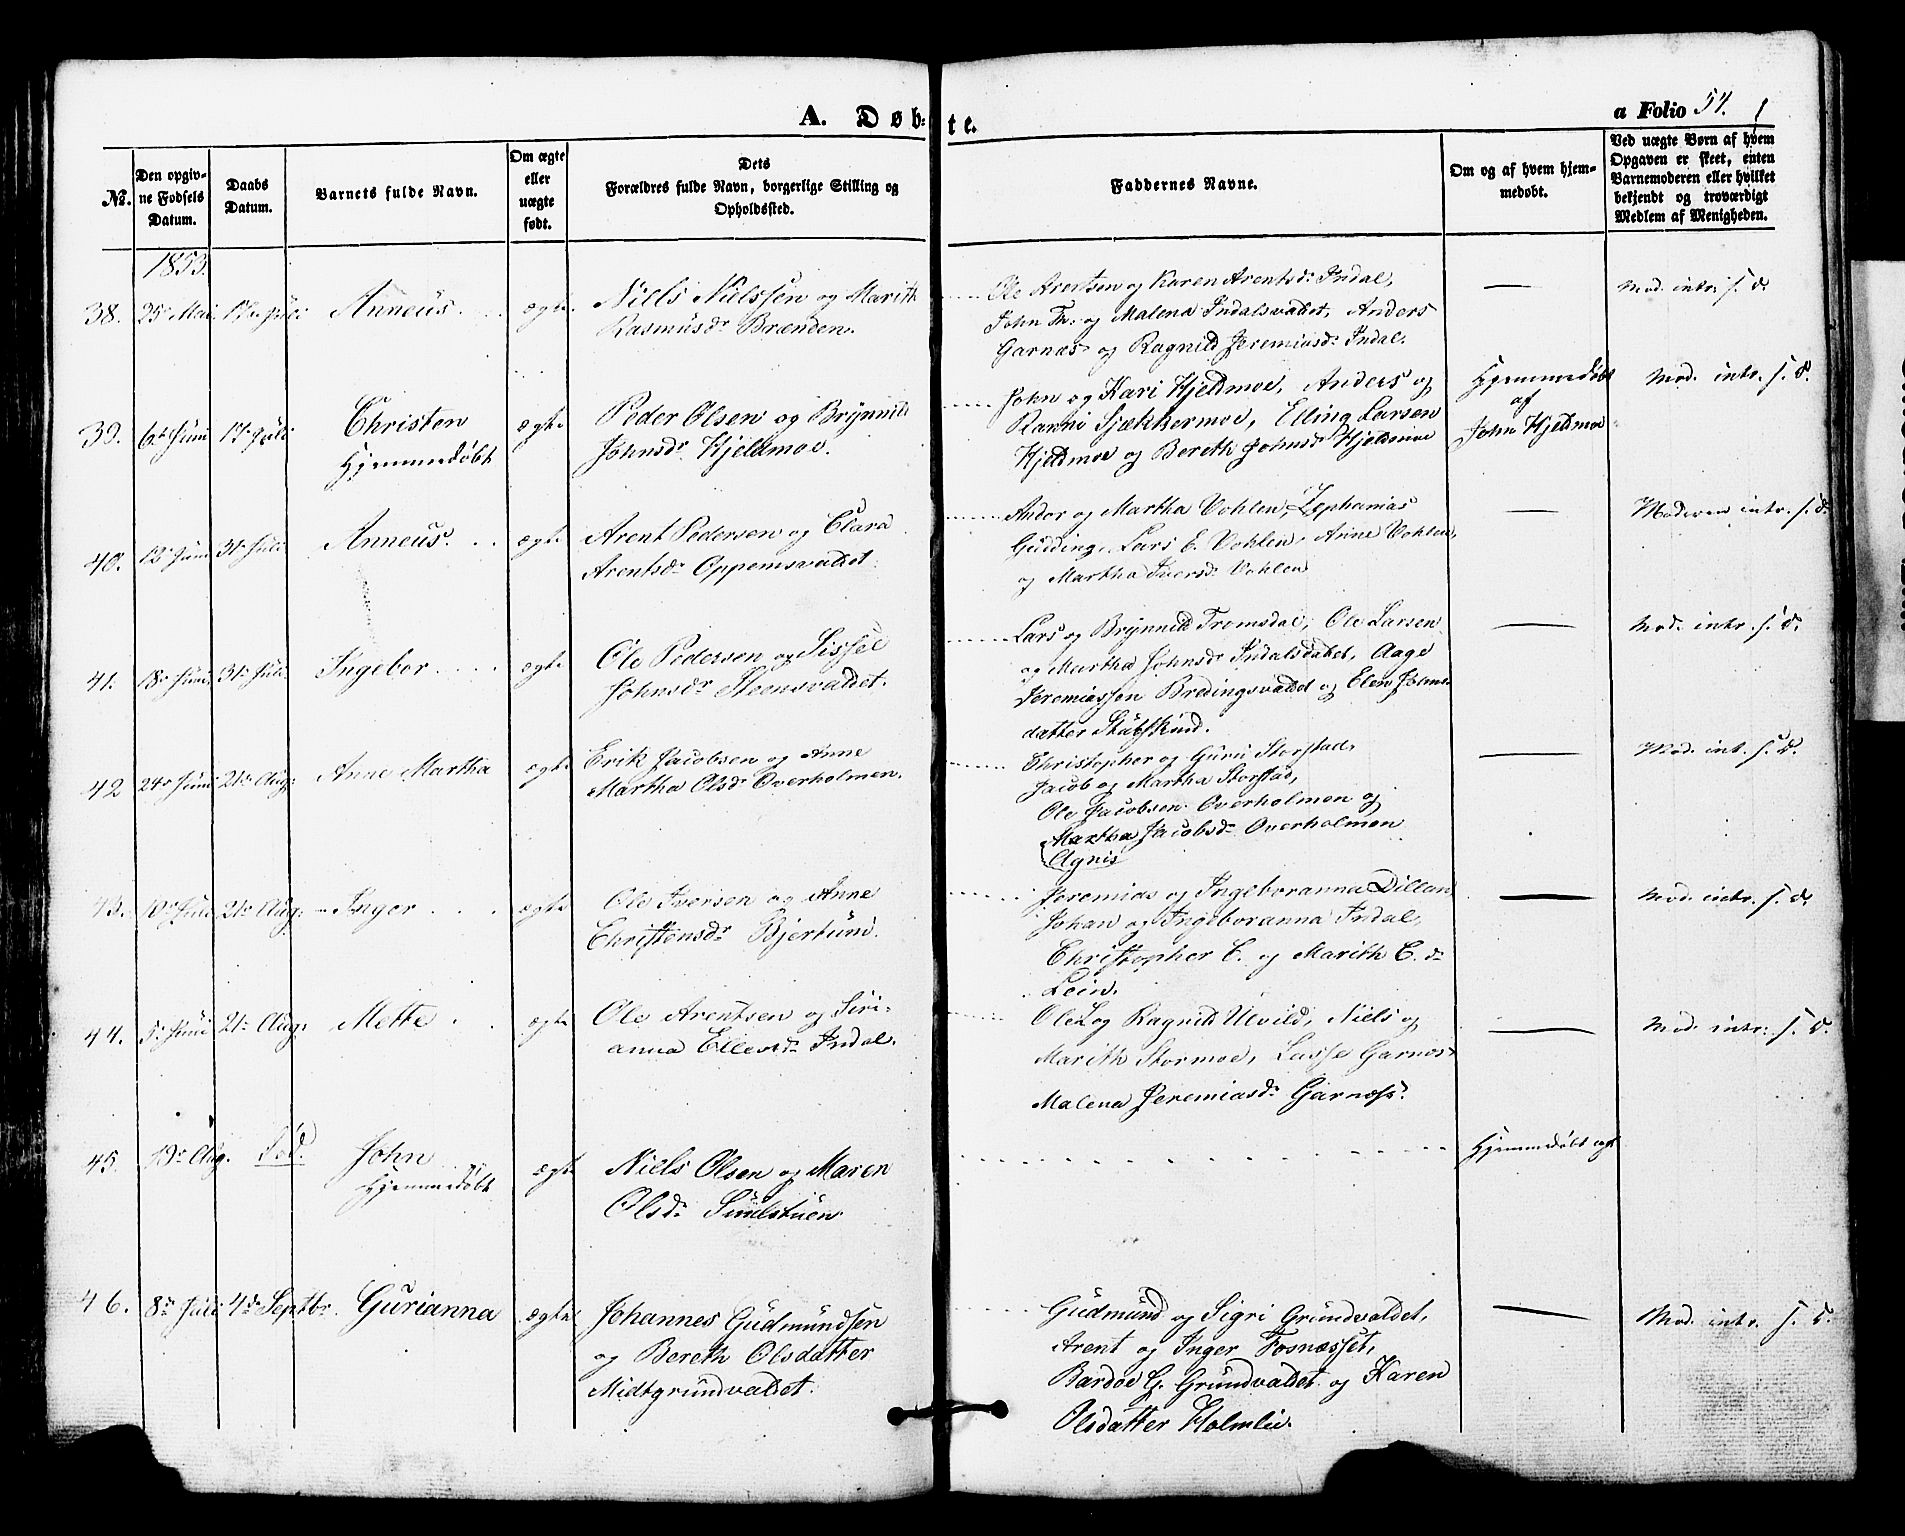 A. Døb: te.
a Folio 54.
№.
Den opgivne Fødsels Datum.
Daabs Datum.
Barnets fulde Navn.
Om ægte eller uægte født.
Dets Forældres fulde Navn, borgerlige Stilling og Opholdssted.
Faddernes Navne.
Om og af hvem hjemmedøbt.
Ved uægte Børn af hvem Opgaven er skeet, enten Barnemoderen eller hvilket bekjendt og troværdigt Medlem af Menigheden.
1853.
38. 25de Mai 17de Juli Anneus. ægte Niels Nielssen og Marith
Rasmusdr Brenden.
Ole Arentsen og Karen Arentsdr Indal,
John Th: og Malena Indalsvaldet, Anders
Garnæs og Ragnild Jeremiasdr Indal.
— Mod. intr. s. d.
39. 6te Juni 17de Juli Christen
Hjemmedøbt
ægte Peder Olsen og Brynnild
Johnsdr Hjeldmoe.
John og Kari Hjeldmoe, Anders og
Ranni Sjækkermoe, Elling Larsen
Hjeldmoe og Bereth Johnsdr Hjeldmoe
Hjemmedøbt
af
John Hjeldmoe
Mod. intr. s. d.
40. 12te Juni 31te Juli Anneus. ægte Arent Pedersen og Clara
Arentsdr Oppemsvaldet.
Andor og Martha Vohlen, Zephanias
Gudding, Lars E. Vohlen, Anne Vohlen,
og Martha Iversdr Vohlen
— Moderen intr. s. d.
41. 18de Juni 31te Juli Ingebor ægte Ole Pedersen og Sissel
Johnsdr Steensvaldet.
Lars og Brynnild Tromsdal, Ole Larsen
og Martha Johnsdr Indalsvaldet, Aage
Jeremiassen Bredingsvaldet og Elen Johns-
datter Stubskind.
— Mod. intr. s. d.
42 24de Juni 21de Aug: Anne Martha ægte Erik Jacobsen og Anne
Martha Olsdr Overholmen.
Christopher og Guru Storstad,
Jacob og Martha Storstad,
Ole Jacobsen Overholmen og
Martha Jacobsdr Overholmen
(Agnis)
— Mod. int. s. d.
43. 21de Aug: Inger ægte Ole Iversen og Anne
Christensdr Bjertuun.
Jeremias og Ingeboranna Dillan
Johan og Ingeboranna Indal,
Christopher C. og Marith C. dr
Lein.
— Mod. intr. s. d.
44. 5te Juni 21de Aug: Mette ægte Ole Arentsen og Siri-
anna Ellevsdr Indal.
Ole L og Ragnild Ulvild, Niels og
Marith Stormoe, Lasse Garnæs
Malena Jeremiasdr Garnæs.
— Mod. intr. s. d.
45. 19de Aug. Død. John
Hjemmedøbt
ægte Niels Olsen og Maren
Olsdr Suulstuen
Hjemmedøbt
46. 8de Juli 4de Septbr. Gurianna ægte Johannes Gudmundsen
og Bereth Olsdatter
Midtgrundvaldet.
Gudmund og Sigri Grundvaldet,
Arent og Inger Fosnæsset,
Bardoe G. Grundvaldet og Karen
Olsdatter Holmlie.
— Mod. intr. s. d.